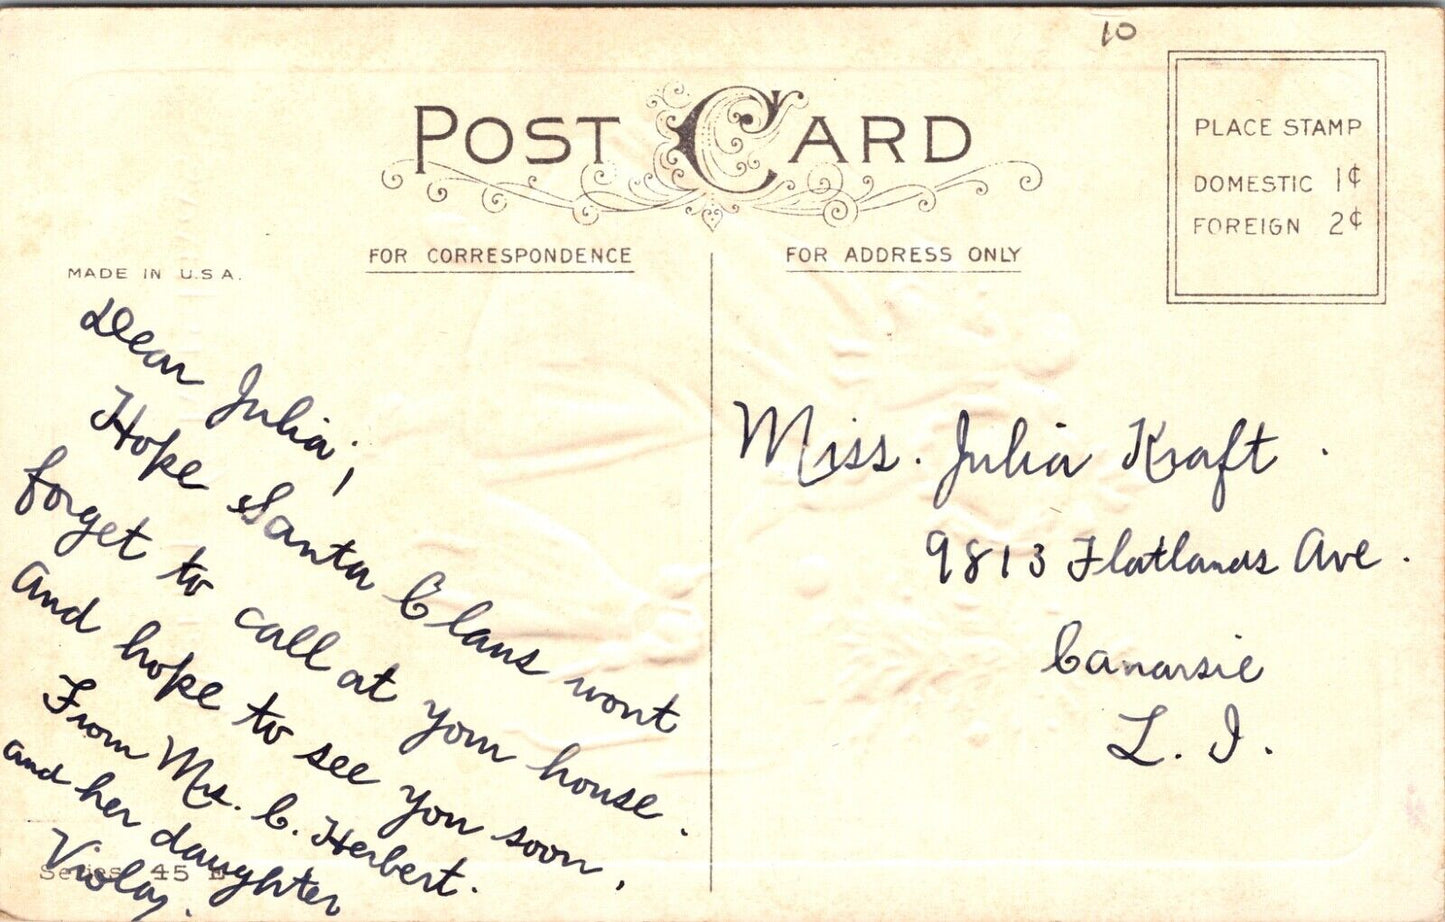 10
POST CARD
PLACE STAMP
DOMESTIC 1¢
FOREIGN 2¢
FOR CORRESPONDENCE
FOR ADDRESS ONLY
MADE IN U.S.A.
Dear Julia,
Hope Santa Claus wont
forget to call at your house.
and hope to see you soon,
From Mrs. C. Herbert.
and her daughter
Violay.
Series 45 E
Miss. Julia Kraft.
9813 Flatlands Ave.
Canarsie
L. I.